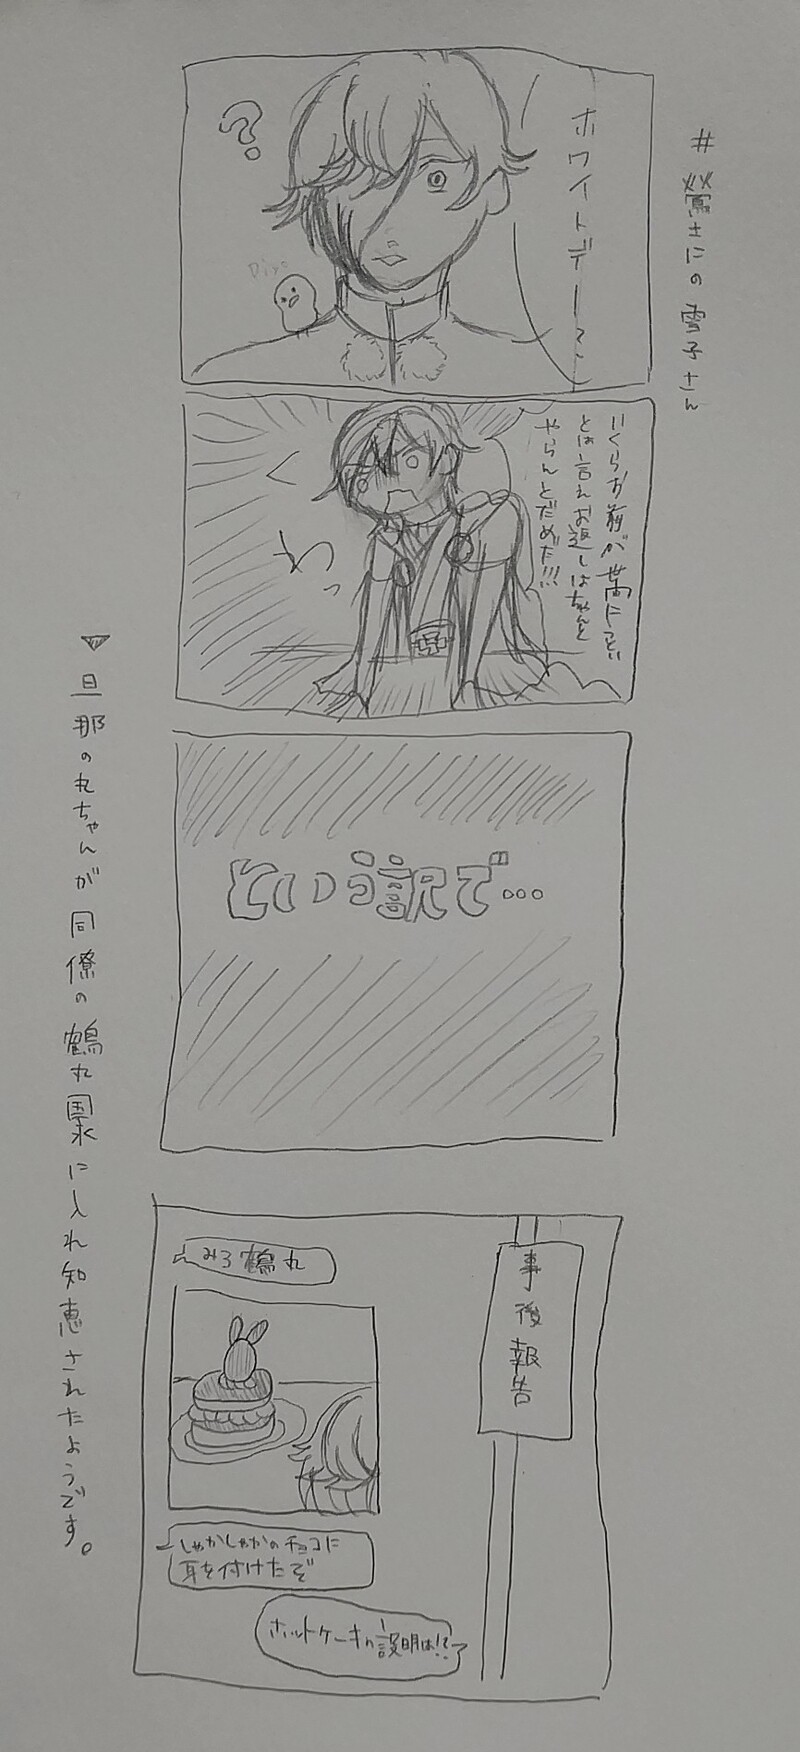 #鶯さにの雪子さん
ホワイトデー?
?
Piyo
いくらお前が世間にうとい
とは言えお返しはちゃんと
やらんとだめだ!!!
くわっ
という訳で…
事後報告
みろ鶴丸
しゃかしゃかのチョコに
耳を付けたぞ
ホットケーキの説明は!?
▼旦那の丸ちゃんが同僚の鶴丸国永に入れ知恵されたようです。